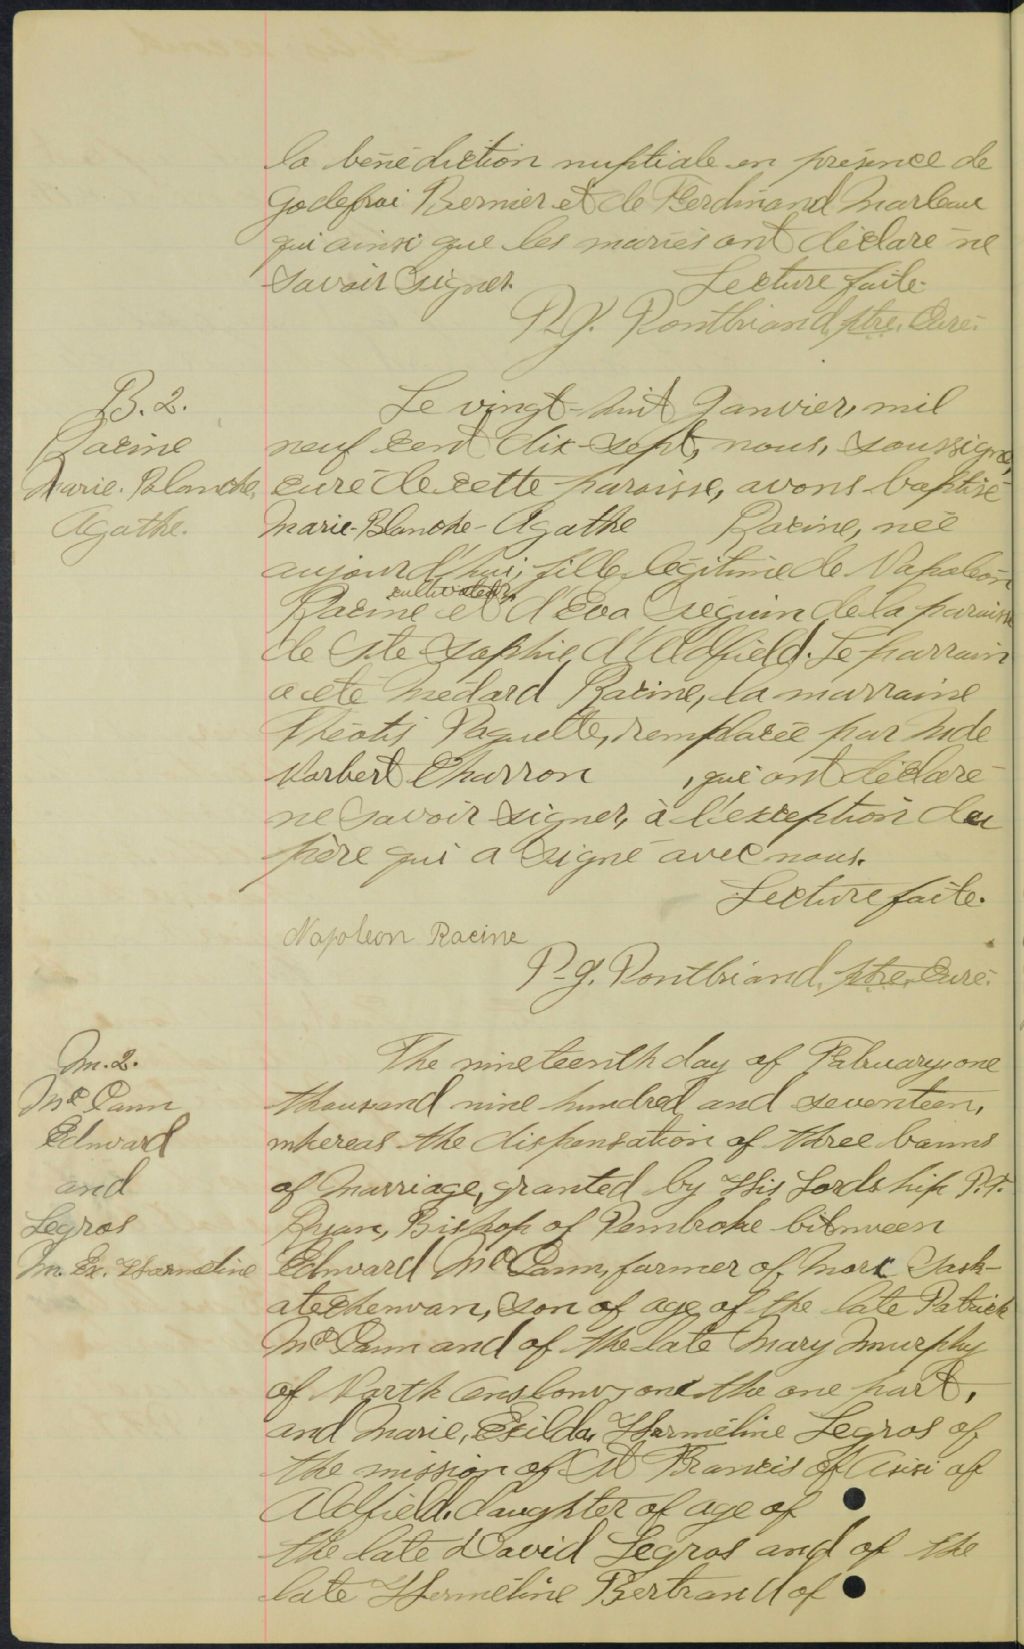 la bénédiction nuptiale en présence de
Godefroi Bernier et de Ferdinand Marleau
qui ainsi que les mariés ont déclaré ne
savoir signer. Lecture faite.
P.G. Pontbriand, ptre, Curé.
B. 2.
Racine
Marie-Blanche,
Agathe.
Le vingt-huit Janvier, mil
neuf cent dix-sept, nous, soussigné,
curé de cette paroisse, avons baptisé
Marie-Blanche-Agathe Racine, née
aujourd'hui, fille légitime de Napoléon
cultivateur,
Racine et d'Eva Séguin de la paroisse
de Ste Sophie d'Aldfield. Le parrain
a été Médard Racine, la marraine
Théotis Paquette, remplacée par Mde
Norbert Charron , qui ont déclaré
ne savoir signer, à l'exception du
père qui a signé avec nous.
Lecture faite.
Napoleon Racine
P.G. Pontbriand, ptre, Curé.
M. 2.
McCann
Edward
and
Legros
M. Ex. Herméline
The nineteenth day of February, one
thousand nine hundred and seventeen,
whereas the dispensation of three banns
of Marriage, granted by His Lordship P.T.
Ryan, Bishop of Pembroke between
Edward McCann, farmer of Sask-
atechenwan, son of age of the late Patrick
McCann and of the late Mary Murphy
of North Onslow, on the one part,
and Marie, Exilda, Herméline Legros of
the mission of St Francis of Assisi of
Aldfield, daughter of age of
the late David Legros and of the
late Herméline Bertrand of